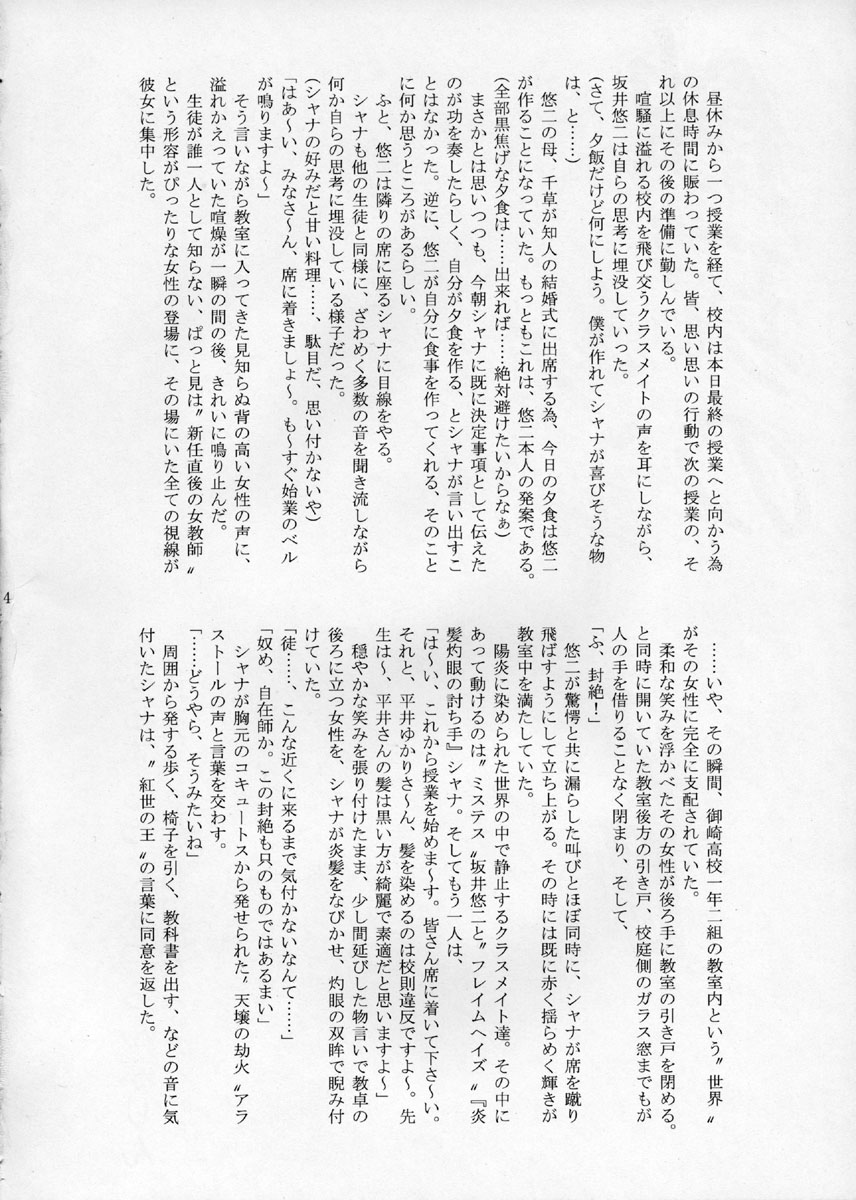 昼休みから一つ授業を経て、校内は本日最終の授業へと向かう為
の休息時間に賑わっていた。皆、思い思いの行動で次の授業の、そ
れ以上にその後の準備に勤しんでいる。
　喧騒に溢れる校内を飛び交うクラスメイトの声を耳にしながら、
坂井悠二は自らの思考に埋没していった。
(さて、夕飯だけど何にしよう。僕が作れてシャナが喜びそうな物
は、と……)
　悠二の母、千草が知人の結婚式に出席する為、今日の夕食は悠二
が作ることになっていた。もっともこれは、悠二本人の発案である。
(全部黒焦げな夕食は……出来れば……絶対避けたいからなぁ)
　まさかとは思いつつも、今朝シャナに既に決定事項として伝えた
のが功を奏したらしく、自分が夕食を作る、とシャナが言い出すこ
とはなかった。逆に、悠二が自分に食事を作ってくれる、そのこと
に何か思うところがあるらしい。
　ふと、悠二は隣りの席に座るシャナに目線をやる。
　シャナも他の生徒と同様に、ざわめく多数の音を聞き流しながら
何か自らの思考に埋没している様子だった。
(シャナの好みだと甘い料理……、駄目だ、思い付かないや)
「はあ～い、みなさ～ん、席に着きましょ～。も～すぐ始業のベル
が鳴りますよ～」
　そう言いながら教室に入ってきた見知らぬ背の高い女性の声に、
溢れかえっていた喧燥が一瞬の間の後、きれいに鳴り止んだ。
　生徒が誰一人として知らない、ぱっと見は〝新任直後の女教師〟
という形容がぴったりな女性の登場に、その場にいた全ての視線が
彼女に集中した。
　……いや、その瞬間、御崎高校一年二組の教室内という〝世界〟
がその女性に完全に支配されていた。
　柔和な笑みを浮かべたその女性が後ろ手に教室の引き戸を閉める。
と同時に開いていた教室後方の引き戸、校庭側のガラス窓までもが
人の手を借りることなく閉まり、そして、
「ふ、封絶！」
　悠二が驚愕と共に漏らした叫びとほぼ同時に、シャナが席を蹴り
飛ばすようにして立ち上がる。その時には既に赤く揺らめく輝きが
教室中を満たしていた。
　陽炎に染められた世界の中で静止するクラスメイト達。その中に
あって動けるのは〝ミステス〟坂井悠二と〝フレイムヘイズ〟『炎
髪灼眼の討ち手』シャナ。そしてもう一人は、
「は～い、これから授業を始めま～す。皆さん席に着いて下さ～い。
それと、平井ゆかりさ～ん、髪を染めるのは校則違反ですよ～。先
生は～、平井さんの髪は黒い方が綺麗で素適だと思いますよ～」
　穏やかな笑みを張り付けたまま、少し間延びした物言いで教卓の
後ろに立つ女性を、シャナが炎髪をなびかせ、灼眼の双眸で睨み付
けていた。
「徒……、こんな近くに来るまで気付かないなんて……」
「奴め、自在師か。この封絶も只のものではあるまい」
　シャナが胸元のコキュートスから発せられた〝天壌の劫火〟アラ
ストールの声と言葉を交わす。
「……どうやら、そうみたいね」
　周囲から発する歩く、椅子を引く、教科書を出す、などの音に気
付いたシャナは、〝紅世の王〟の言葉に同意を返した。
4